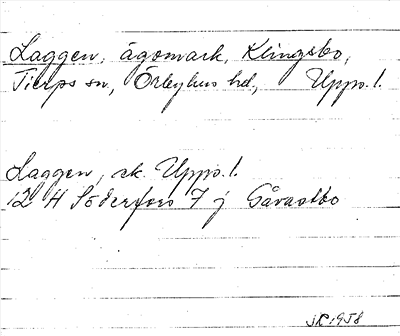 Laggen, ägomark, Klingsbo,
Tierps sn, Örbyhus hd, Upps. l.
Laggen, ek. Upps. l.
12 H Söderfors 7 j Gåvastbo
1958